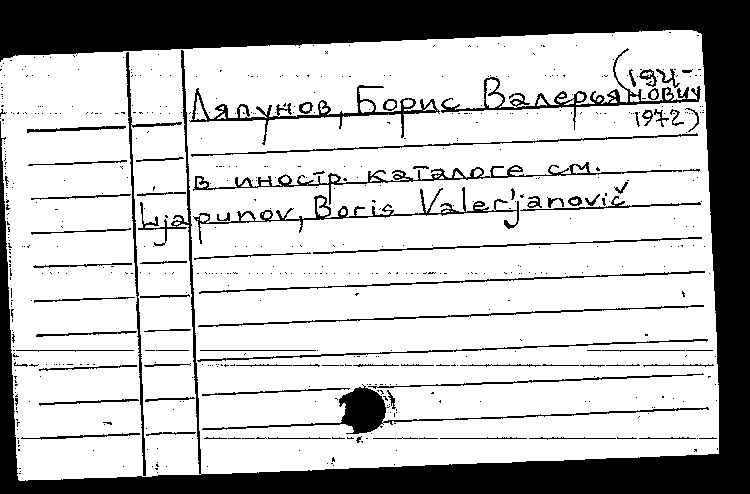 Ляпунов, Борис Валерьянович
1972)
в иностр. каталоге см.
Ljapunov, Boris Valer'janovič